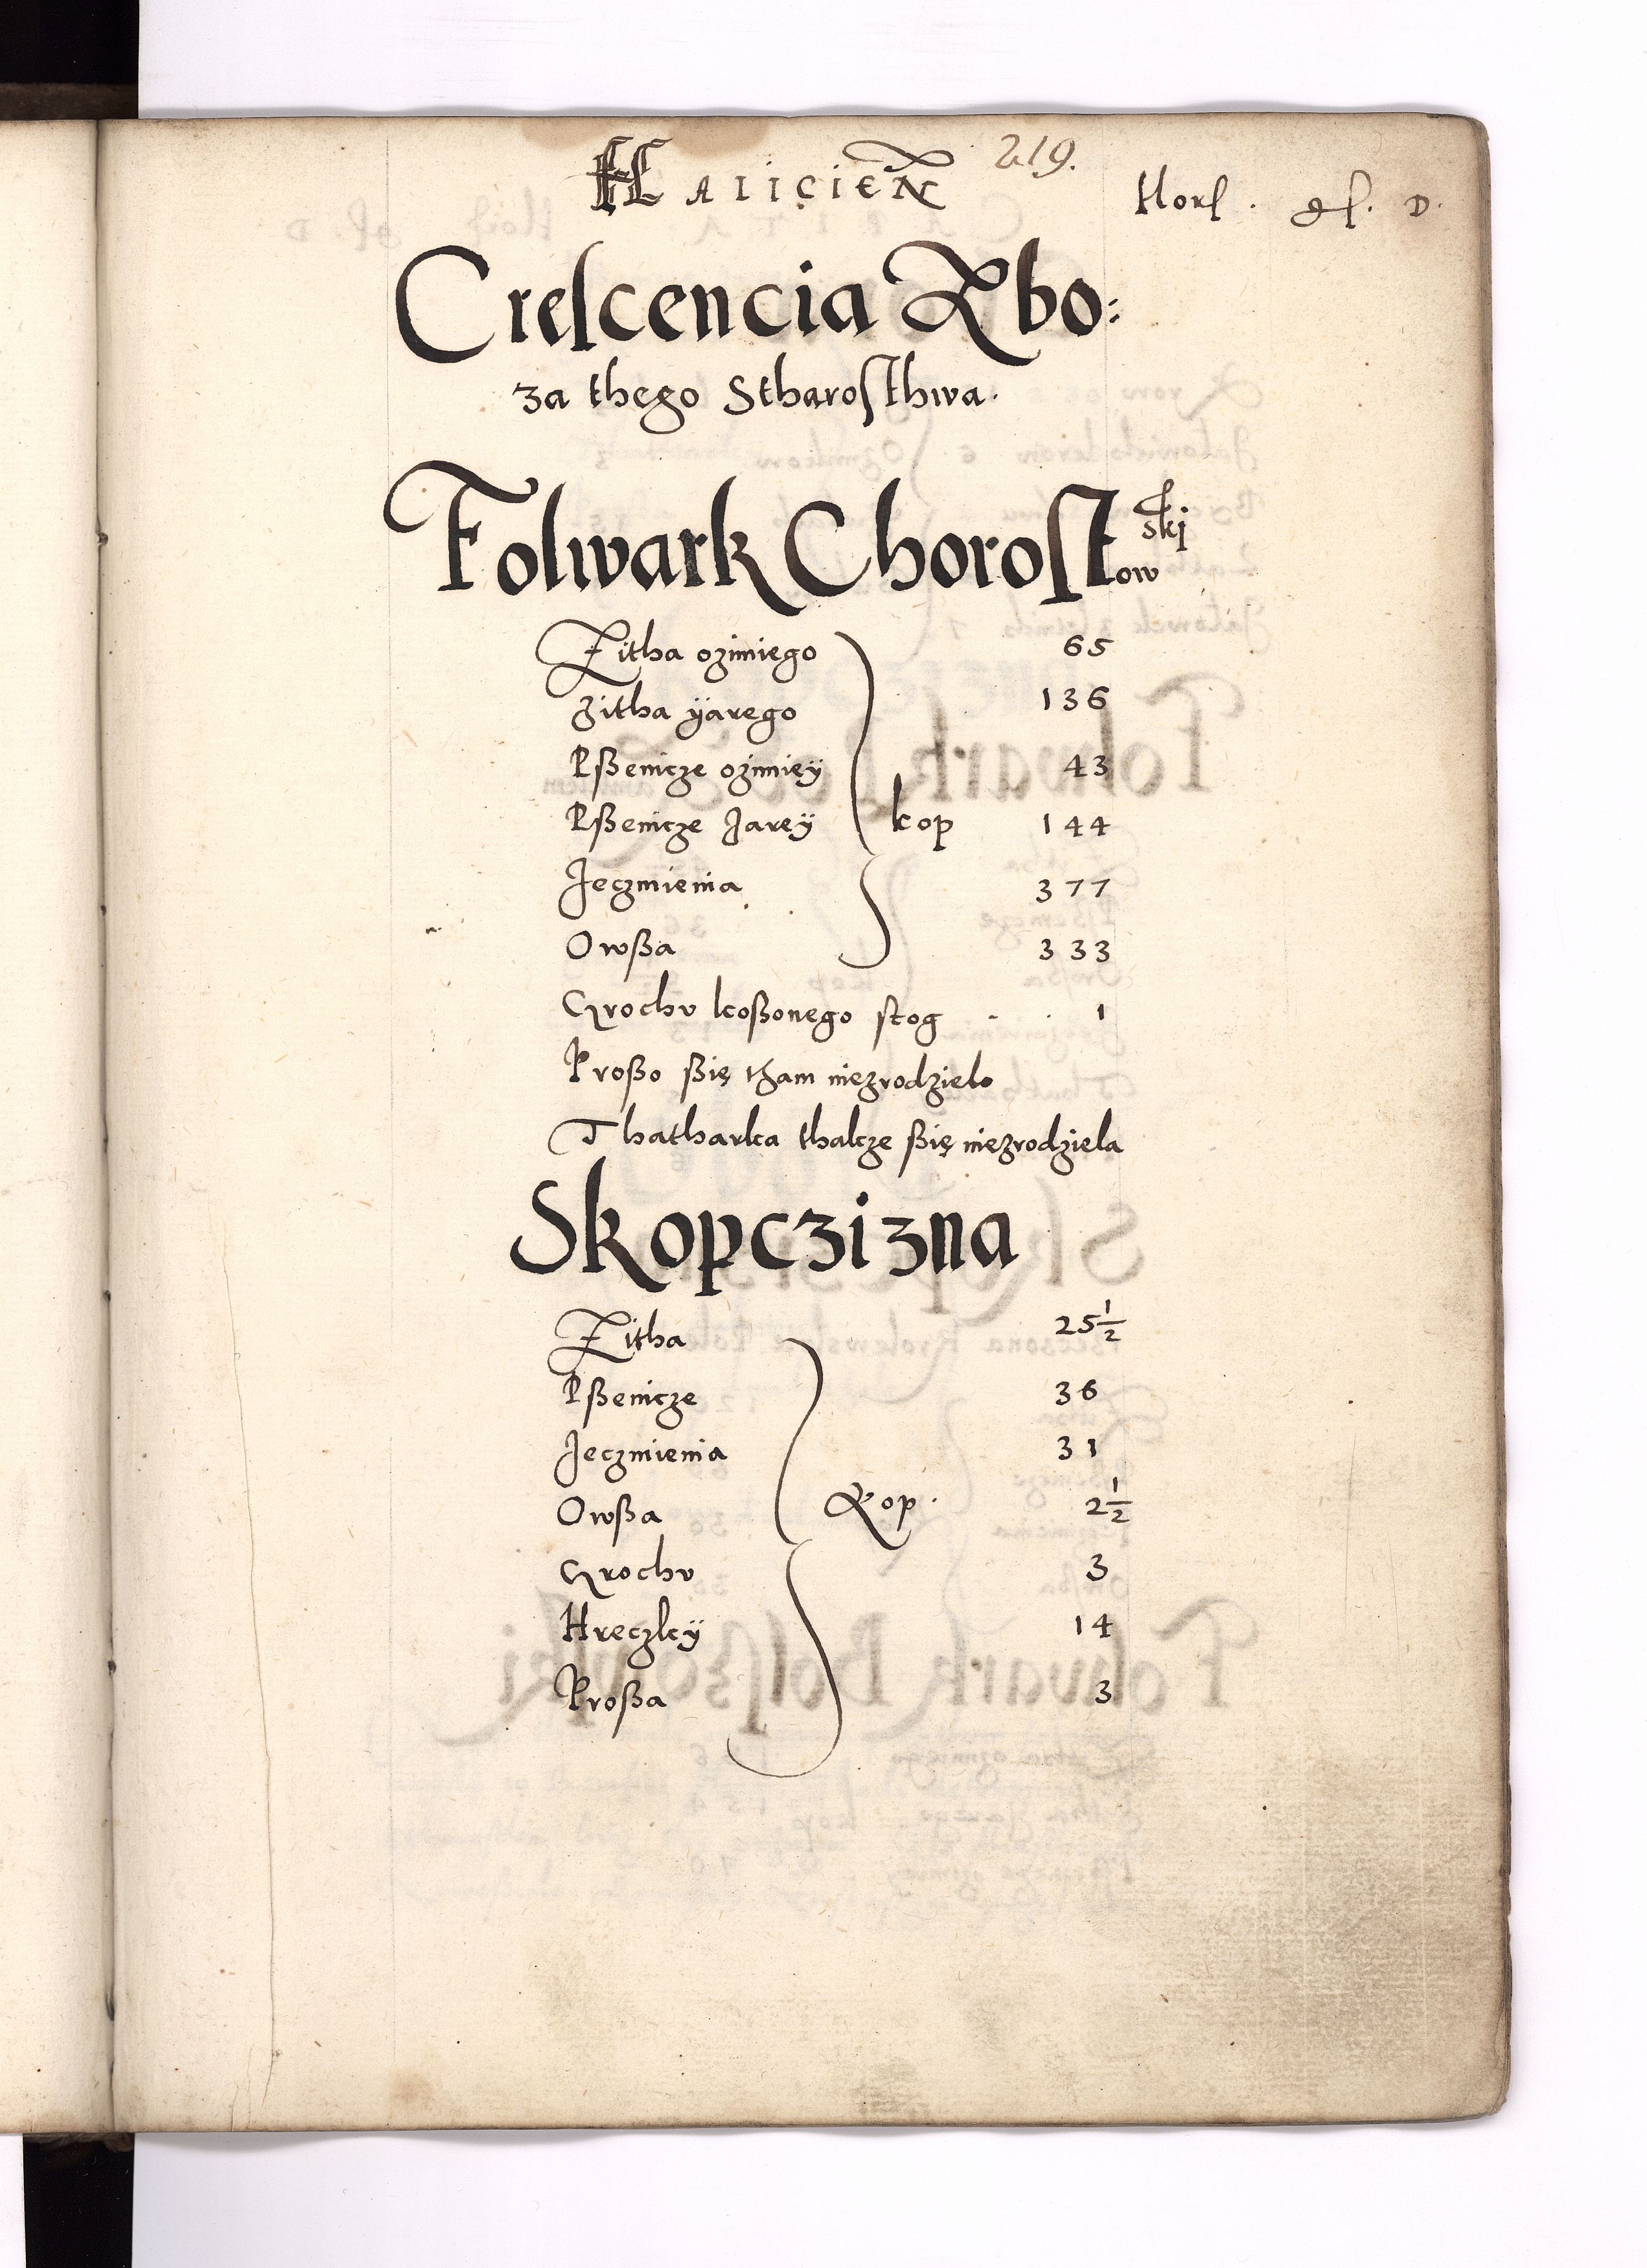 HAlicieñ 219.
flor. gl. D.
Crescencia Zbo:
za thego Stharosthwa.
Folwark Chorostowski
Zitha ozimiego 65
Zitha ÿarego 136
Pßenicze ozimieÿ 43
Pßenicze Jareÿ kop 144
Jeczmienia 377
Owßa 333
Grochv koßonego stog . . 1
Proßo ßię tham niezrodzielo
Thatharka thakze ßię niezrodziela
Skopczizna
Zitha 25 1/2
Pßenicze 36
Jeczmienia 31
Owßa Kop. 2 1/2
Grochv 3
Hreczkÿ 14
Proßa 3